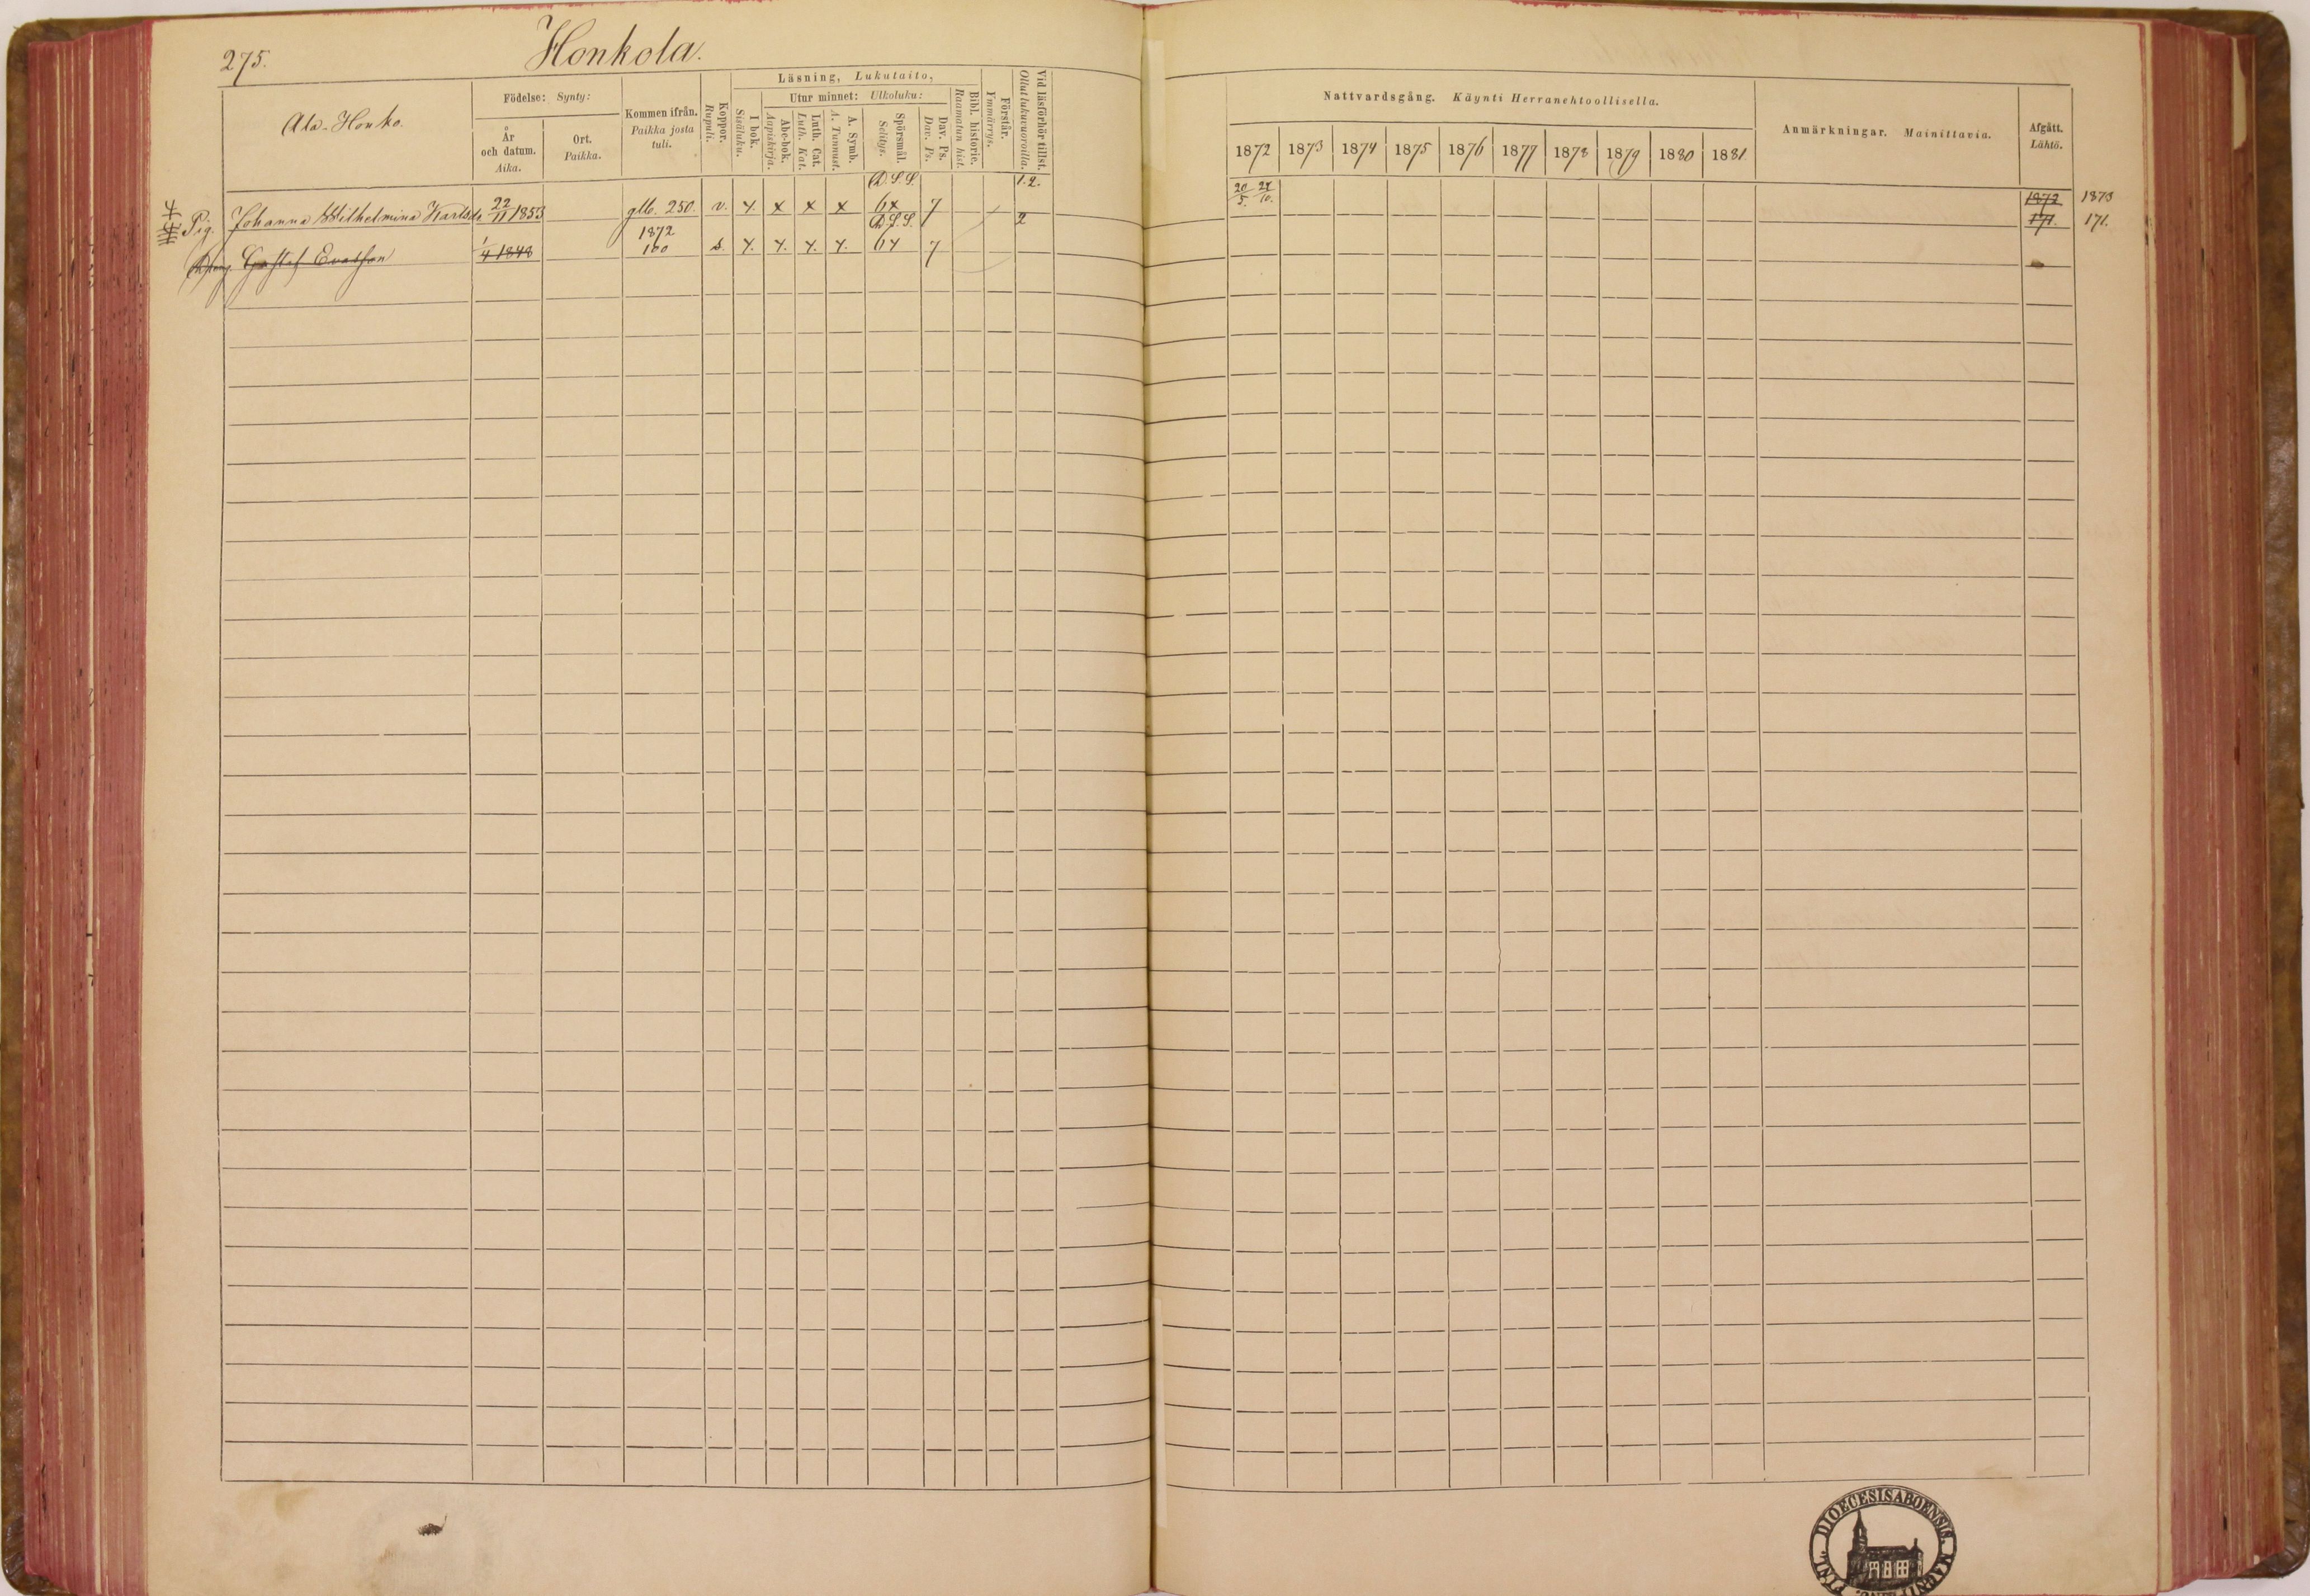 275.
Honkola.
Ala-Honko.
Födelse: Synty:
År och datum. Aika.
Ort. Paikka.
Kommen ifrån. Paikka josta tuli.
Koppor. Rupuli.
Läsning, Lukutaito,
I bok. Sisäluku.
Utur minnet: Ulkoluku:
Abc-bok. Aapiskirja.
Luth. Cat. Luth. Kat.
A. Symb. A. Tunnust.
Spörsmål. Selitys.
Dav. Ps. Dav. Ps.
Bibl. historie. Raamatun hist.
Förstår. Ymmärrys.
Vid läsförhör tillst. Ollut lukuvuoroilla.
D.S.S. 1.2.
Pig. Johanna Wilhelmina Karlsdr 22/11 1853 glb. 250. v. x x x x 6x 7
1872 D.S.S. 2
Gustaf 1/4 1848 100 s. x. x. x. x. 6x 7
Nattvardsgång. Käynti Herranehtoollisella.
Anmärkningar. Mainittavia.
Afgått. Lähtö.
1872 1873 1874 1875 1876 1877 1878 1879 1880 1881
1872 1873
171. 171.
DIOECESIS ABOENSIS